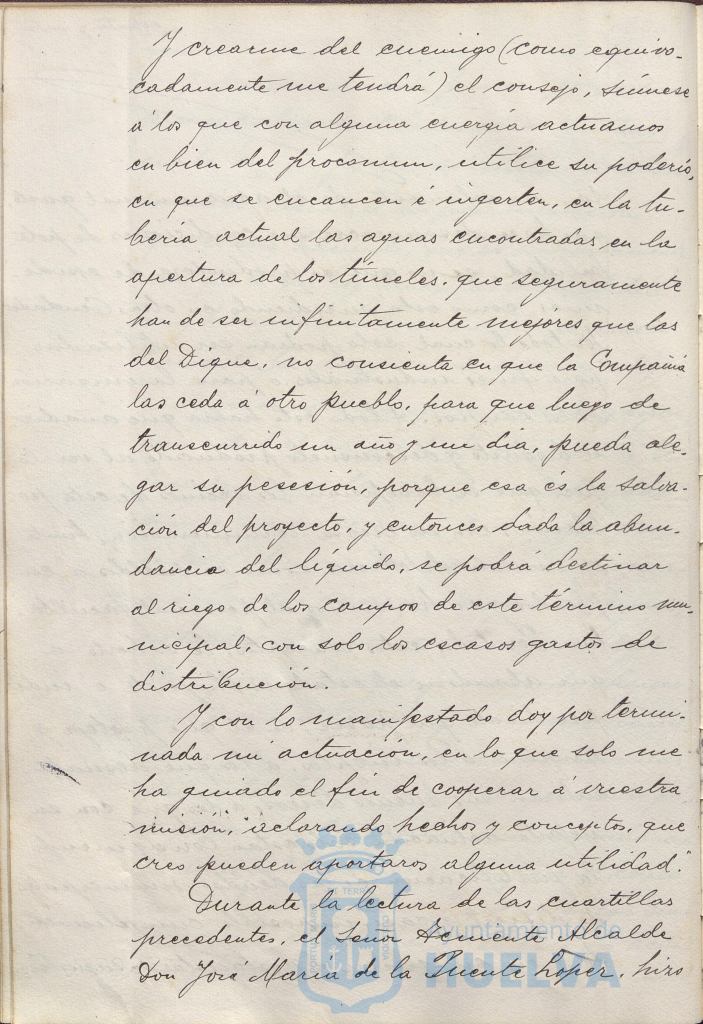 Y crearme del enemigo (como equivo-
cadamente me tendrá) el consejo, súmese
á los que con alguna energía actuamos
en bien del procomun, utilice su poderío,
en que se encaucen é ingerten, en la tu-
bería actual las aguas encontradas en la
apertura de los túneles, que seguramente
han de ser infinitamente mejores que las
del Dique, no consienta en que la Compañía
las ceda á otro pueblo, para que luego de
transcurrido un año y un dia, pueda ale-
gar su pesesión, porque esa és la salva-
ción del proyecto, y entonces dada la abun-
dancia del líquido, se podrá destinar
al riego de los campos de este término mu-
nicipal, con solo los escasos gastos de
distribución.
Y con lo manifestado doy por termi-
nada mi actuación, en lo que solo me
ha guiado el fin de cooperar á vuestra
misión, aclarando hechos y conceptos, que
creo pueden aportaros alguna utilidad."
Durante la lectura de las cuartillas
precedentes, el Señor Teniente Alcalde
Don José María de la Puente López, hizo
Ayuntamiento de
HUELVA